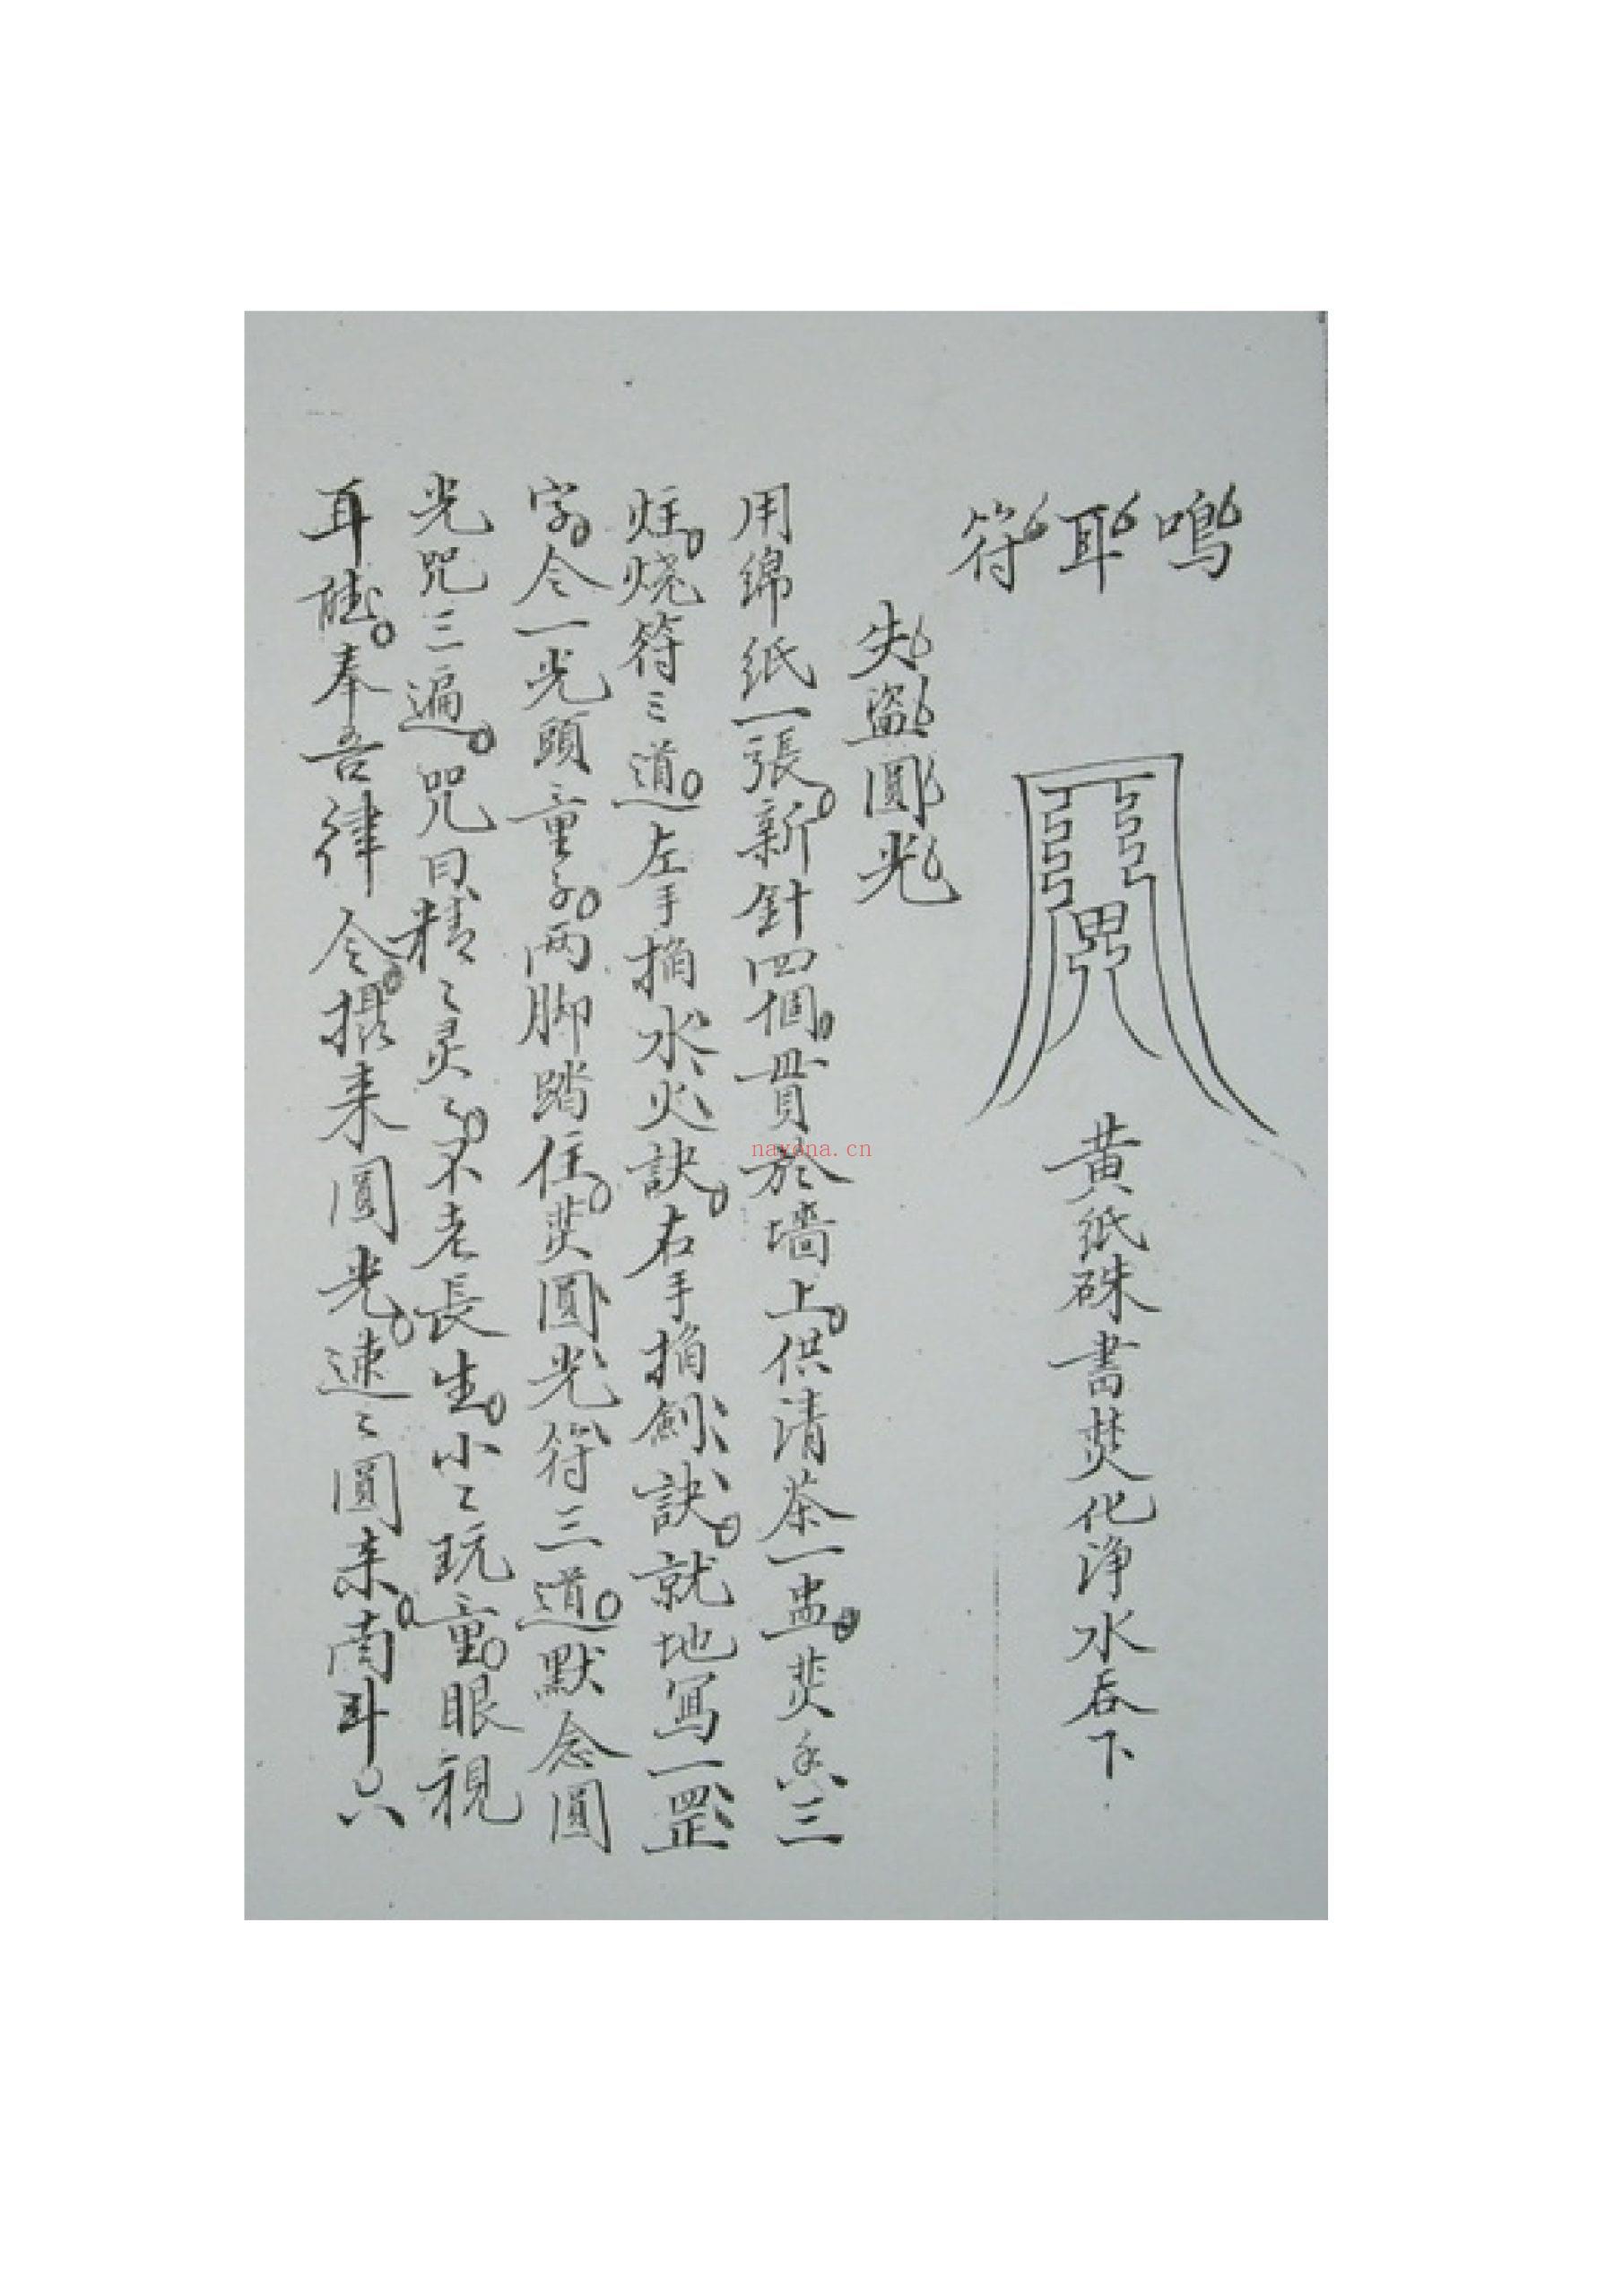 鳴耳符
黄紙硃書焚化淨水吞下
失盗圓光
用綿紙一張新針四個貫於墻上供清茶一盅焚香三
炷燒符三道左手掐水火訣右手掐劍訣就地寫一罡
字令一光頭童子两脚踏住焚圓光符三道默念圓
光咒三遍咒曰精々灵々不老長生小々玩童眼視
耳聴奉吾律令攝来圓光速々圓来南斗六
nayona.cn